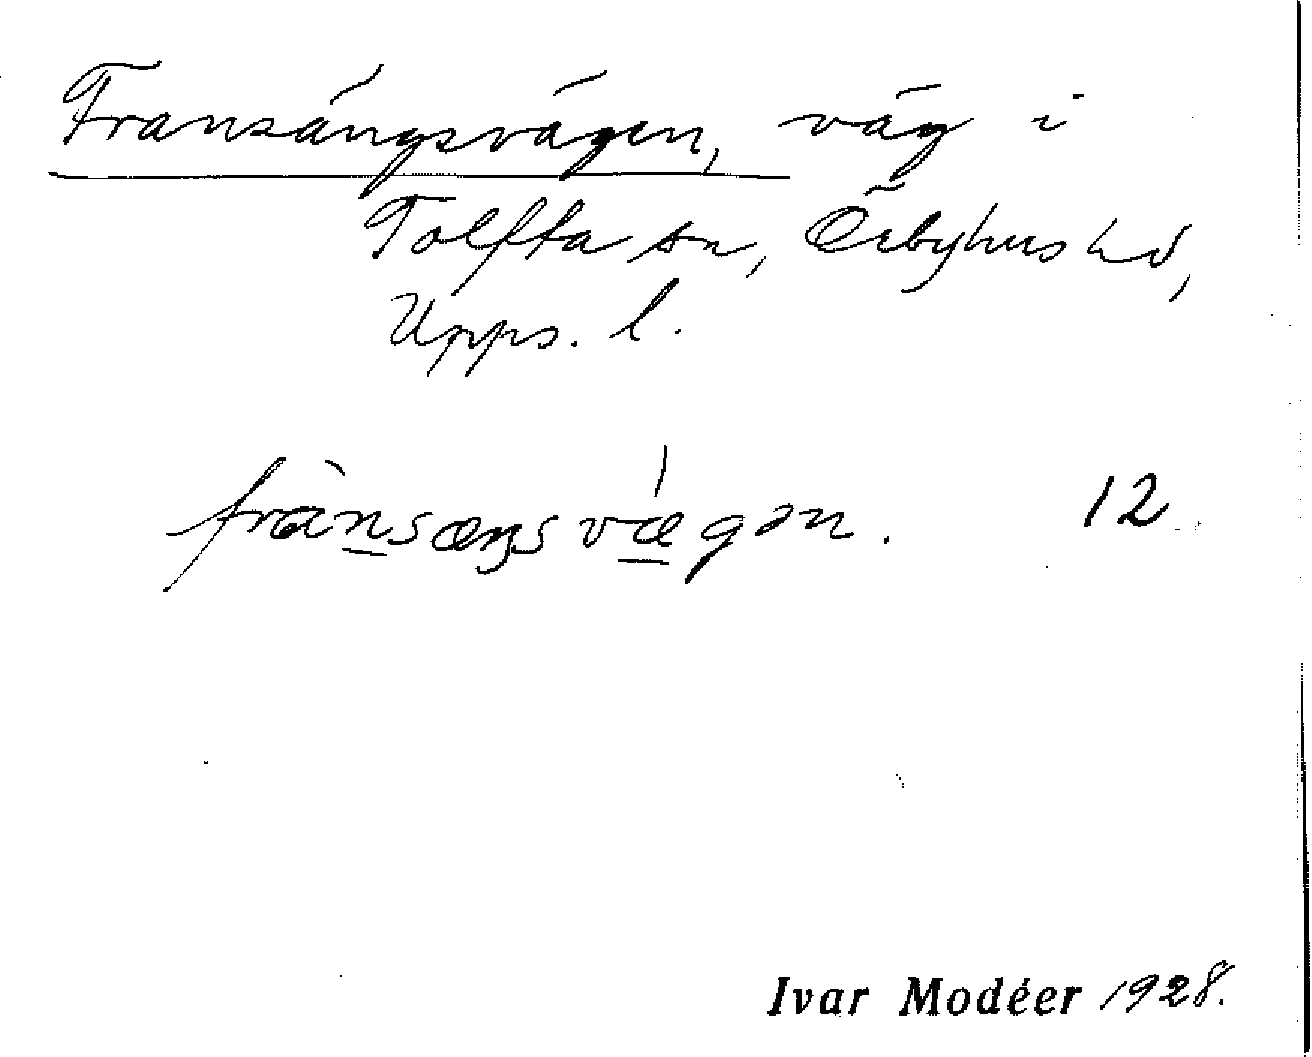 Fransängsvägen, väg i
Tolfta sn, Örbyhus hd,
Upps. l.
frànsæŋsvǽgən. 12
Ivar Modéer 1928.